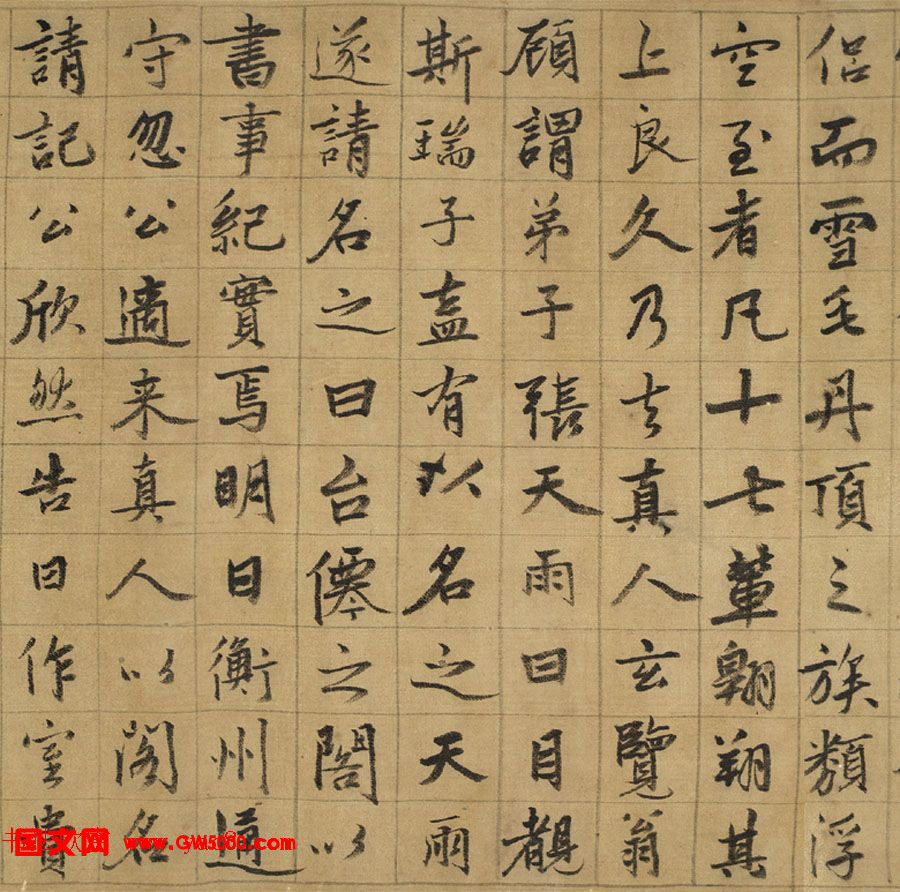 侶而雪毛丹頂之族類浮
空至者凡十七輩翱翔其
上良久乃去真人玄覽翁
顧謂弟子張天雨曰目覩
斯瑞子盍有以名之天雨
遂請名之曰台僊之閣以
書事紀實焉明日衡州道
守忽公適来真人以閣名
請記公欣然告曰作室貴
国文网 www.GW5000.com